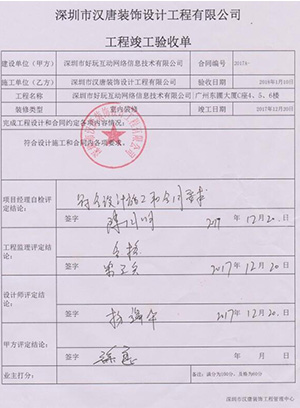 深圳市汉唐装饰设计工程有限公司
工程竣工验收单
建设单位（甲方） 深圳市好玩互动网络信息技术有限公司 合同编号 2017A-
施工单位（乙方） 深圳市汉唐装饰设计工程有限公司 验收日期 2018年1月10日
工程名称 深圳市好玩互动网络信息技术有限公司 广州东圃大厦C座4、5、6楼
装修类型 室内装修 竣工日期 2017年12月20日
完成工程设计和合同约定各项内容情况：
符合设计施工和合同内各项要求。
项目经理自检评定结论： 符合设计施工和合同要求
签字 2017 年 12月20日
工程监理评定结论： 合格
签字 2017年12月20日
设计师评定结论：
签字 2017年12月20日
甲方评定结论：
签字 年 月 日
业主打分： 备注：满分为100分，及格为60分
深圳市汉唐装饰工程管理中心